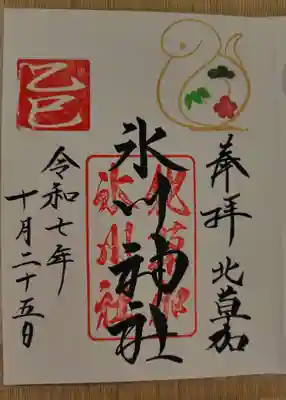 奉拝 北草加
氷川神社
北草加
氷川社
乙巳
令和七年
十月二十五日